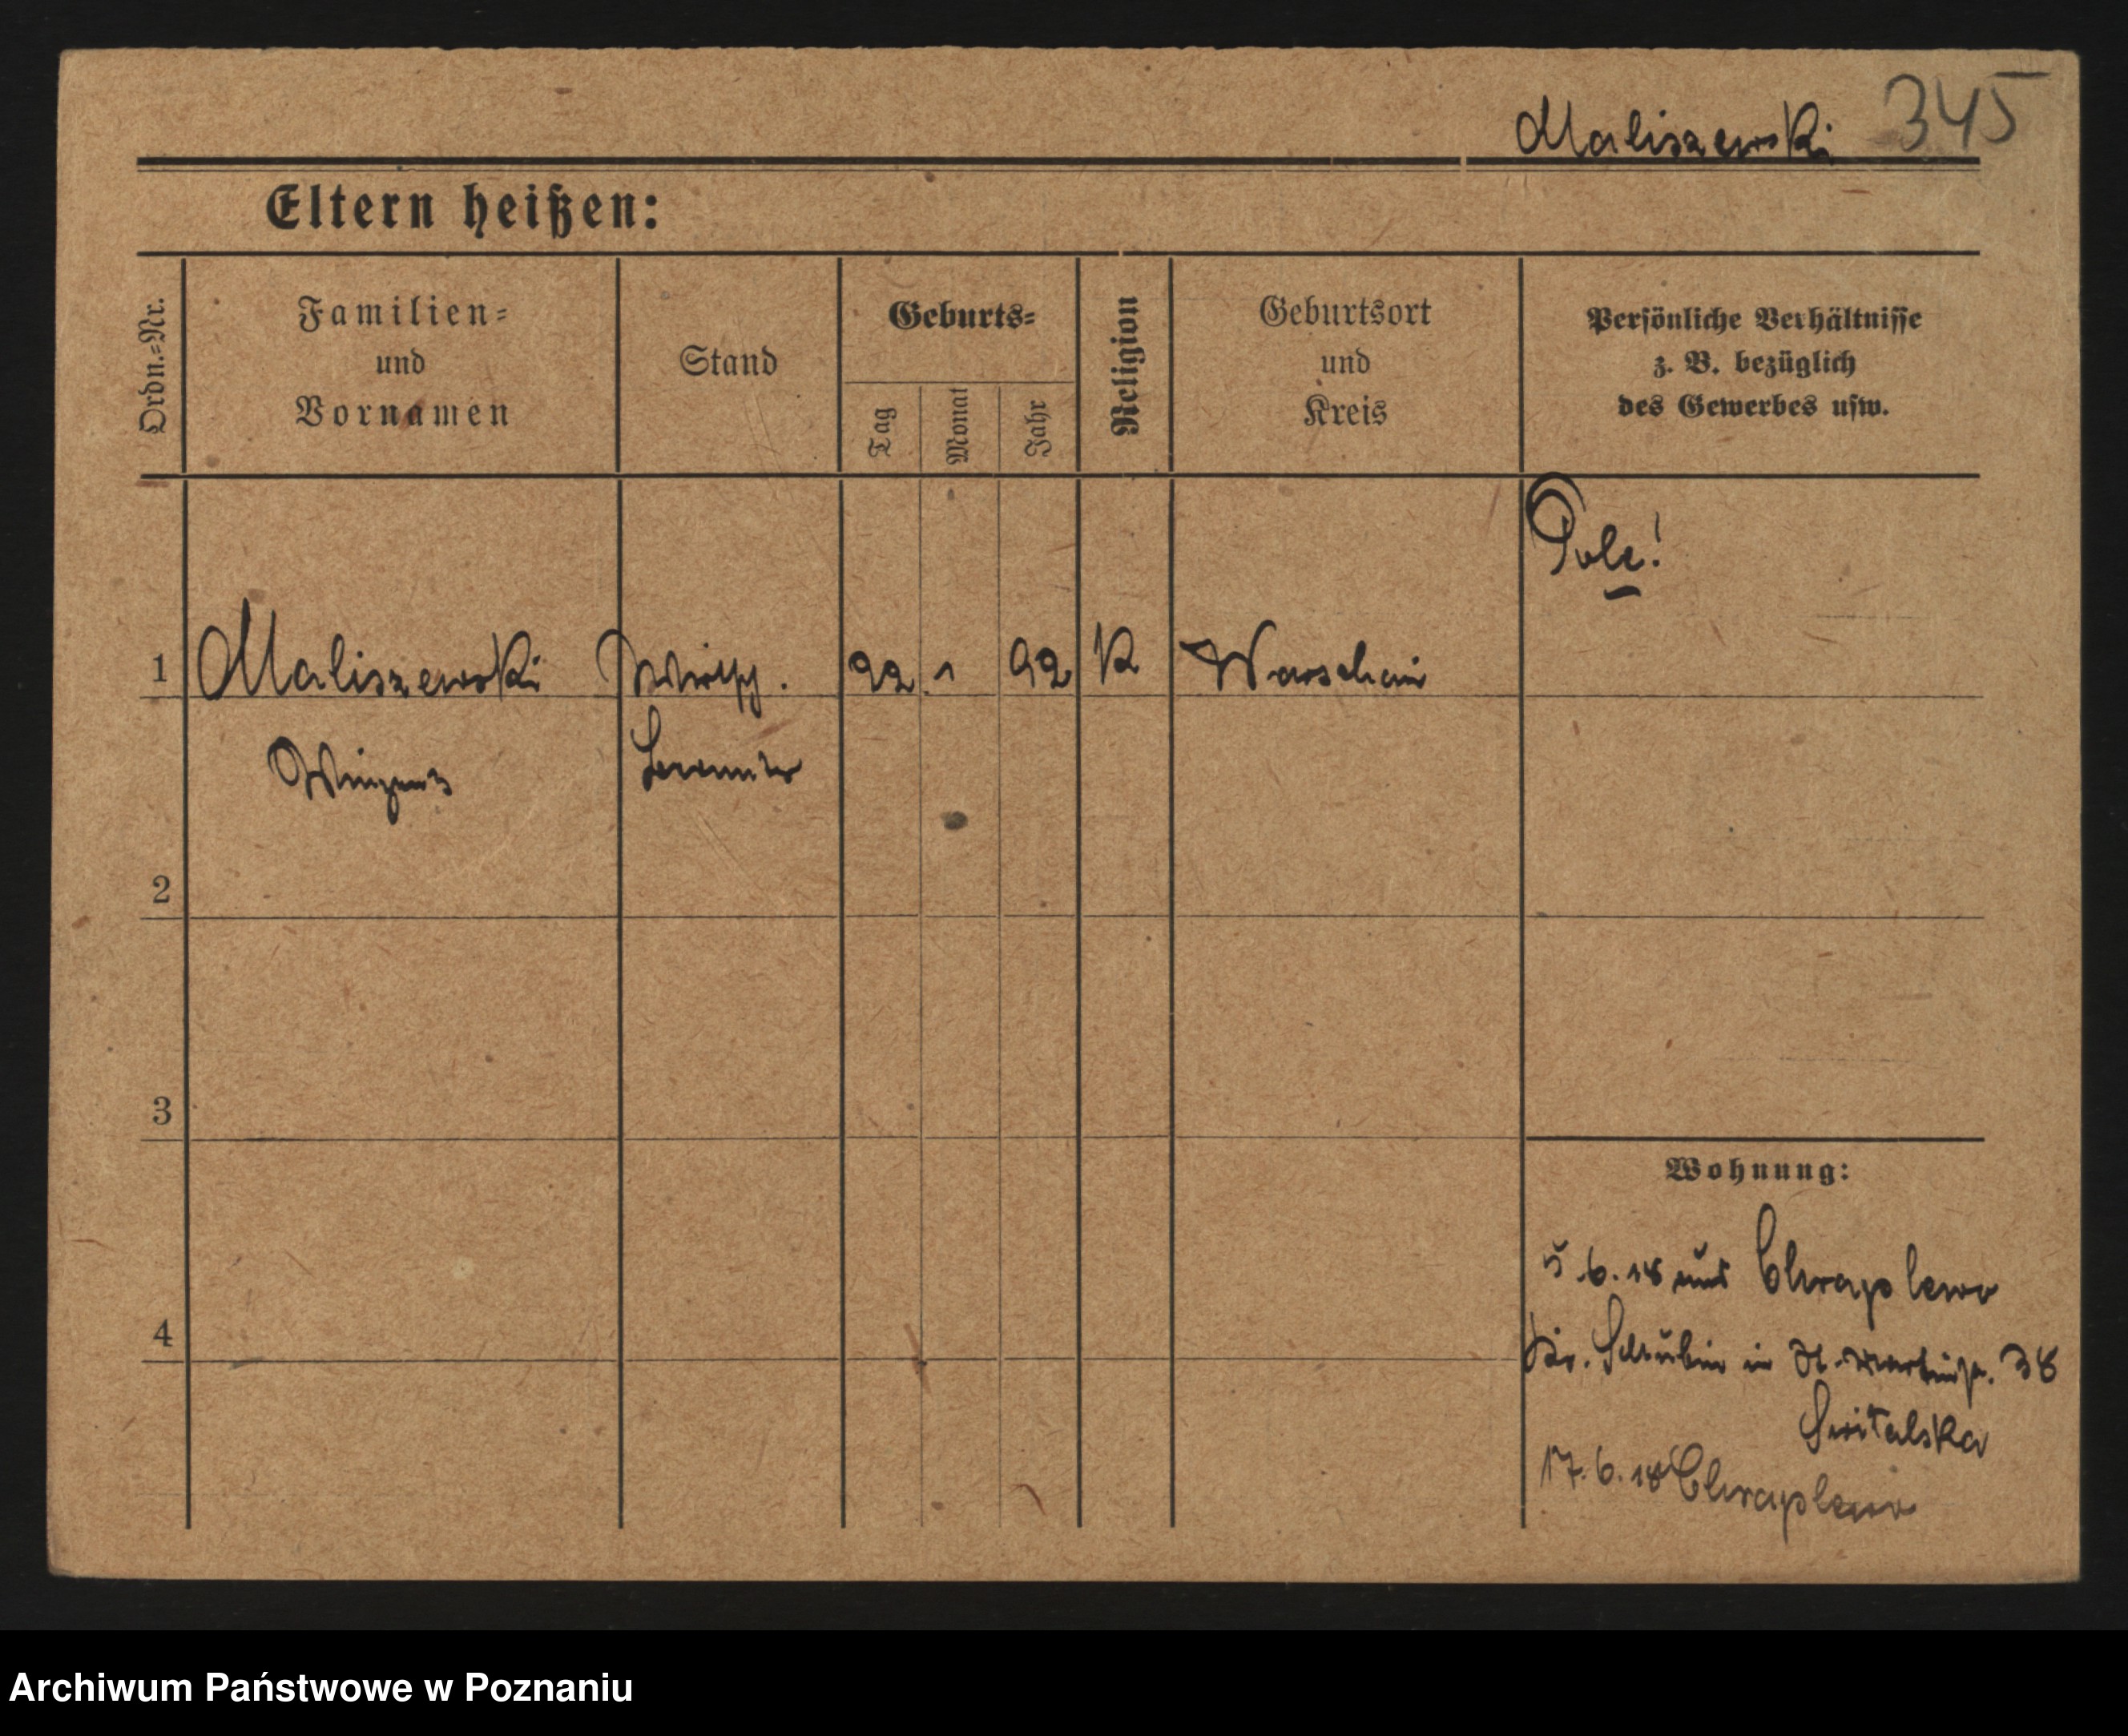 Maliszewski 345
Eltern heißen:
Ordn.-Nr.
Familien- und Vornamen
Stand
Geburts-
Tag
Monat
Jahr
Religion
Geburtsort und Kreis
Persönliche Verhältnisse z. B. bezüglich des Gewerbes usw.
Pole!
1 Maliszewski 22. 1 92 K Warschau
2
3
Wohnung:
5. 6. 18 aus Chraplewo
4
Kr. Schubin in St. Martinstr. 38
Switalska
17. 6. 18 Chraplewo
Archiwum Państwowe w Poznaniu